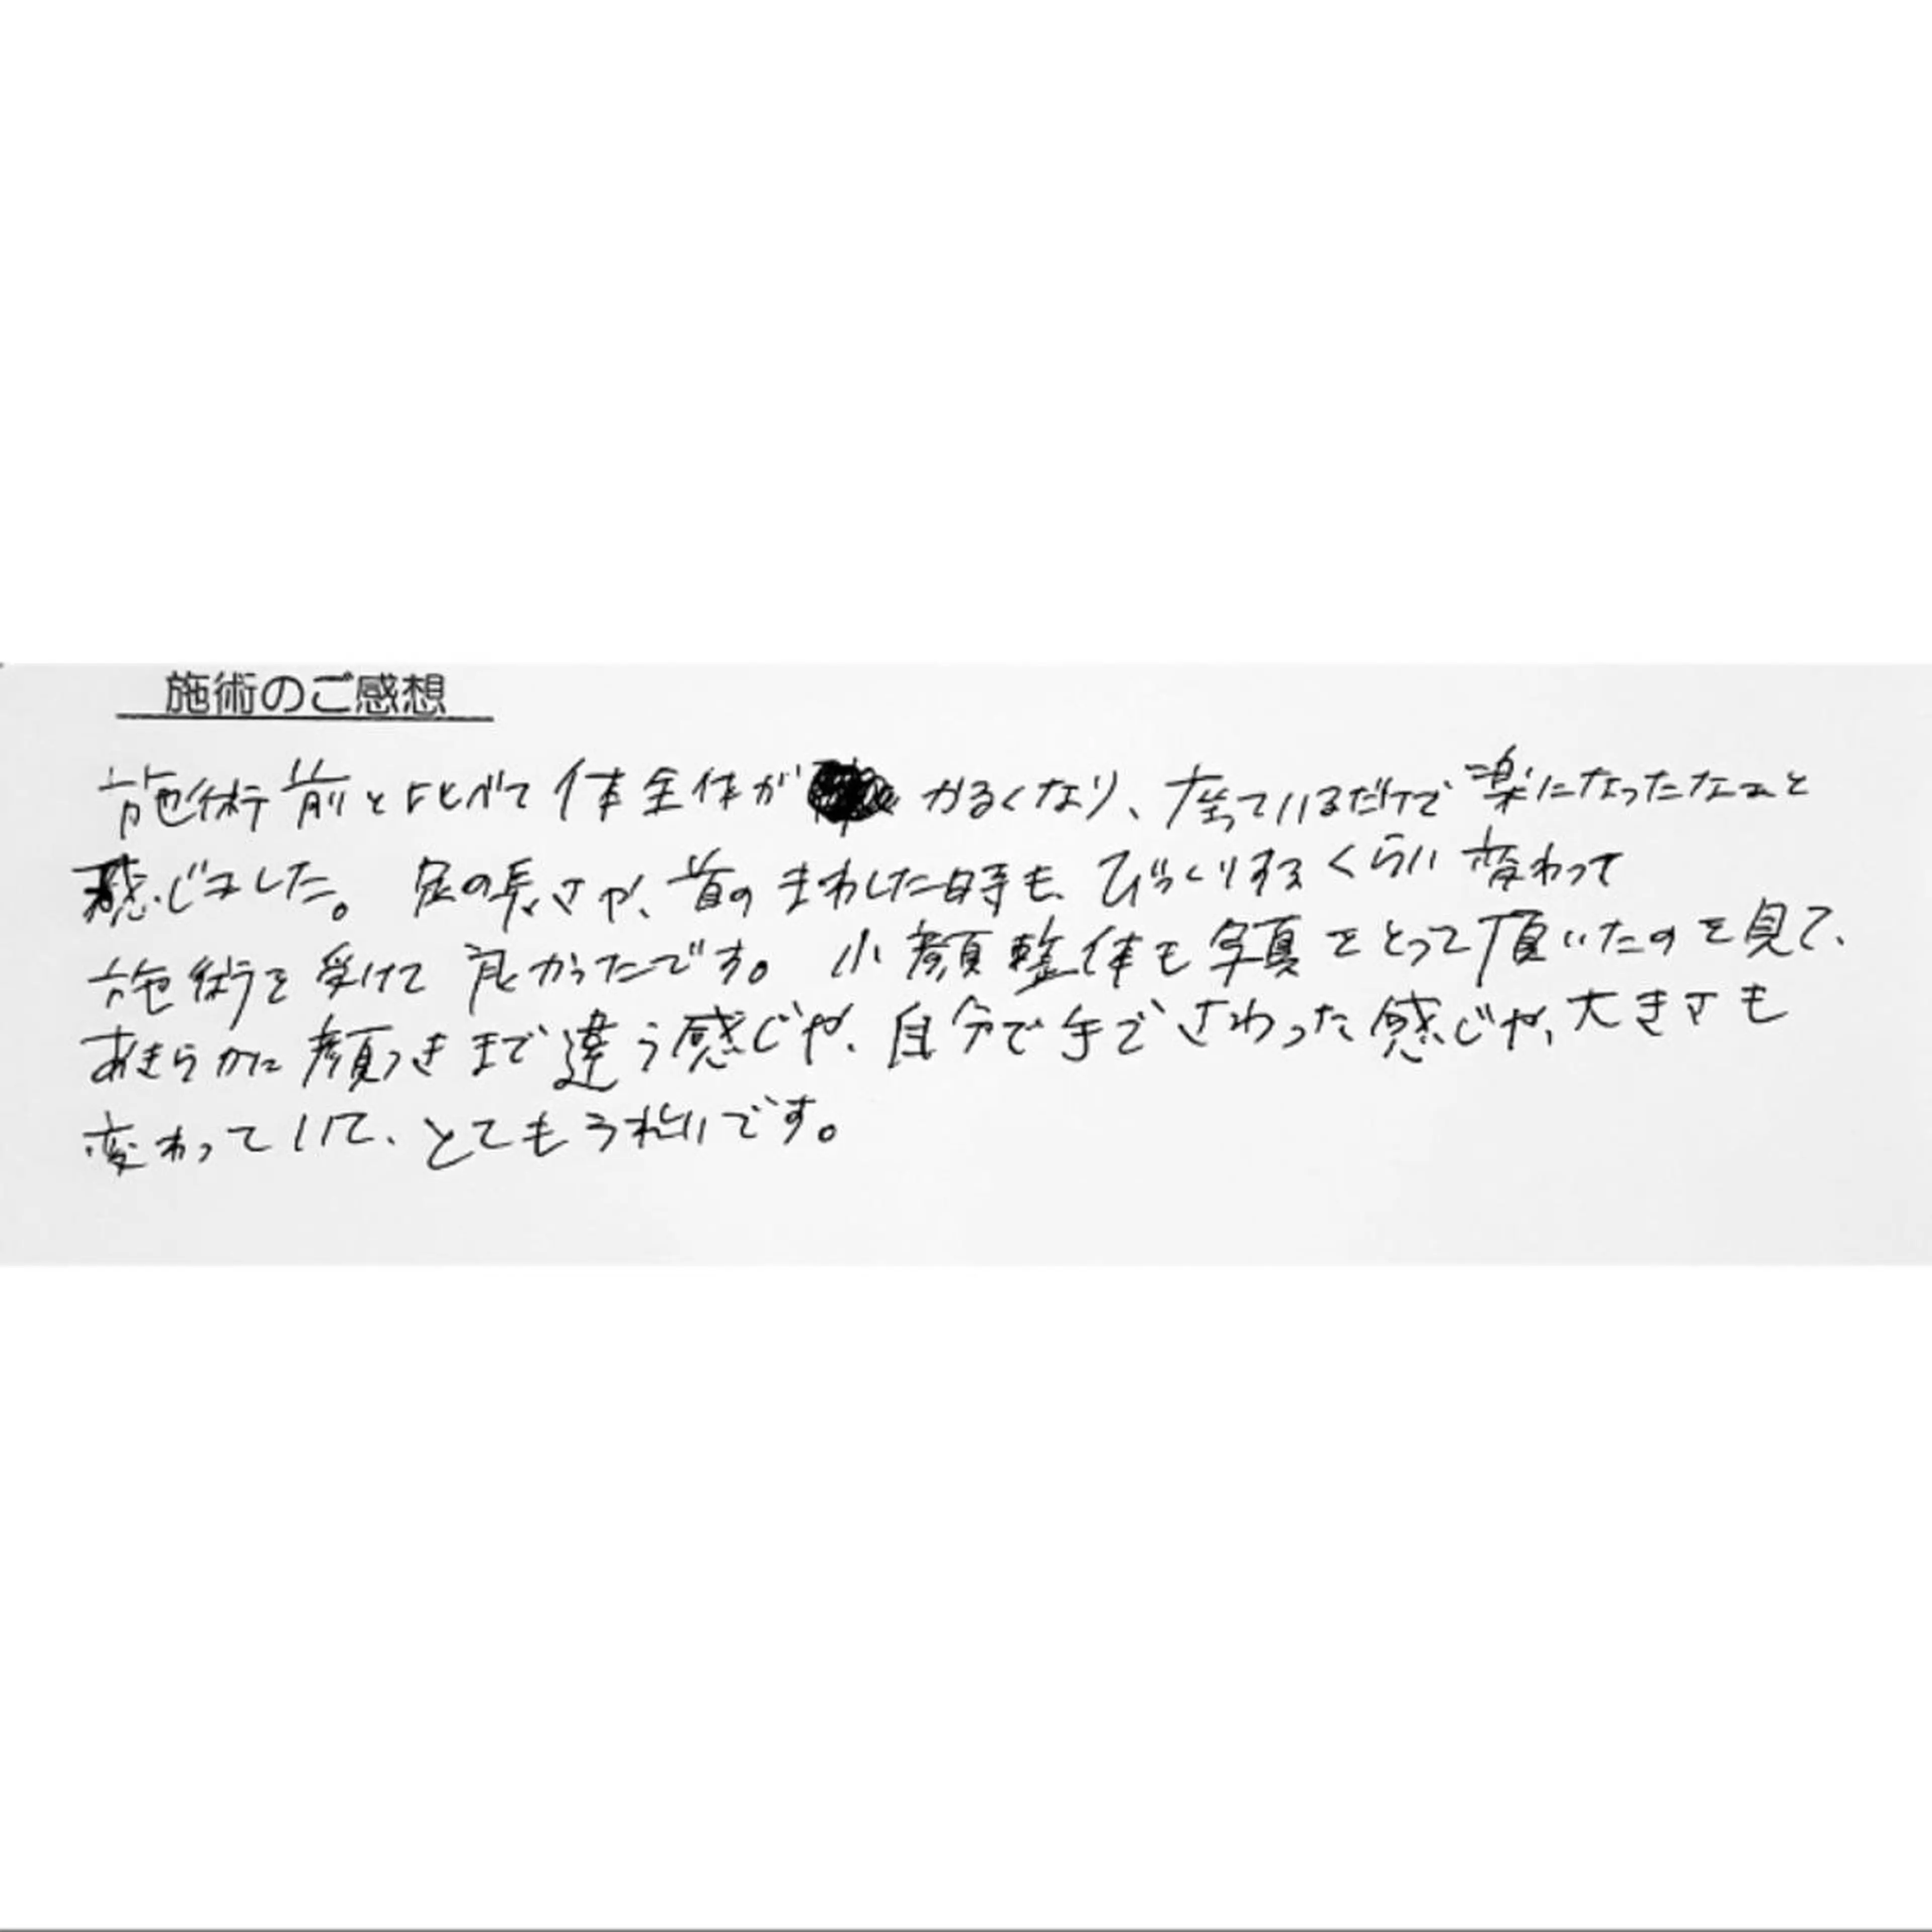 施術のご感想
施術前と比べて体全体が かるくなり、座っているだけで楽になったなぁと
感じました。足の長さや、首のまわした時も、びっくりするくらい変わって
施術を受けて良かったです。小顔整体も写真をとって頂いたのを見て、
あきらかに顔つきまで違う感じや、自分で手でさわった感じや、大きさも
変わっていて、とてもうれしいです。